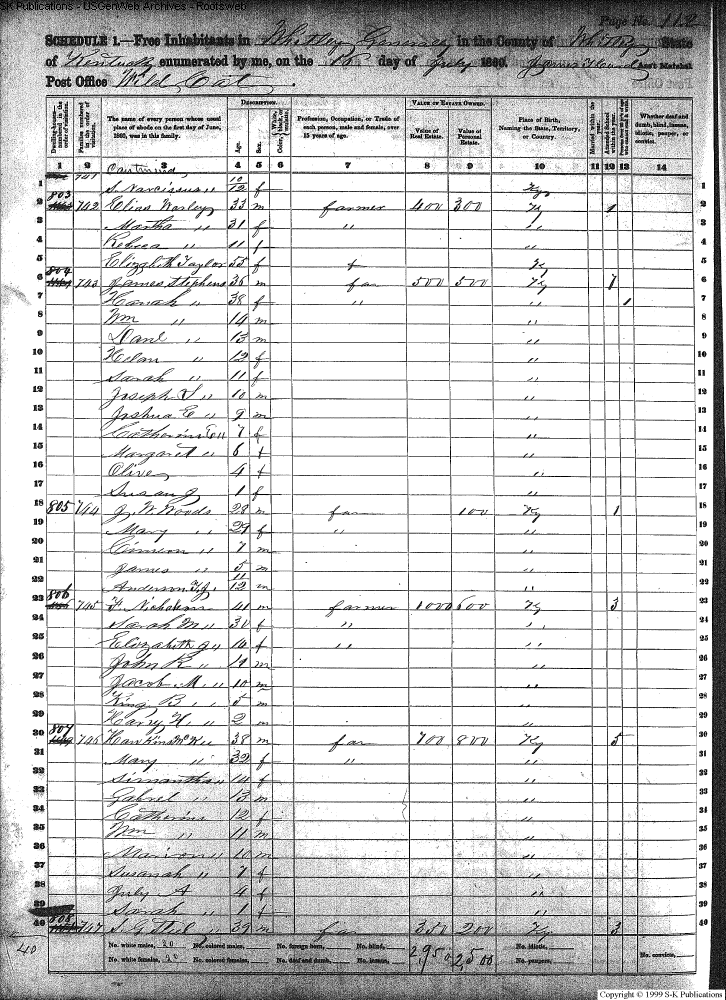 SK Publications - USGenWeb Archives - Rootsweb
Page No. 112
SCHEDULE 1.—Free Inhabitants in Whitley General in the County of Whitley State
of Kentucky enumerated by me, on the day of July 1860. Ass't Marshal
Post Office Wild Cat
Dwelling-houses—numbered in the order of visitation.
Families numbered in the order of visitation.
The name of every person whose usual place of abode on the first day of June, 1860, was in this family.
DESCRIPTION.
Age. Sex. Color, White, black, or mulatto.
Profession, Occupation, or Trade of each person, male and female, over 15 years of age.
VALUE OF ESTATE OWNED.
Value of Real Estate. Value of Personal Estate.
Place of Birth, Naming the State, Territory, or Country.
Married within the year. Attended School within the year.
Whether deaf and dumb, blind, insane, idiotic, pauper, or convict.
1 2 3 4 5 6 7 8 9 10 11 12 13 14
741 Continued
1 S. Narcissus " 12 f Ky 1
2 803 742 Elias 33 m farmer 400 300 Ky 1 2
3 Martha " 31 f " " 3
4 Rebeca " 11 f " 4
5 Elizabeth Taylor 55 f Ky 5
6 804 743 James Stephens 36 m far 500 500 Ky 7 6
7 Hanah " 38 f " " 1 7
8 Wm " 14 m " 8
9 Danl " 13 m " 9
10 Helan " 12 f " 10
11 Sarah " 11 f " 11
12 Joseph S " 10 m " 12
13 Joshua E " 9 m " 13
14 Catherine E " 7 f " 14
15 Margaret " 6 f " 15
16 Olive 4 f " 16
17 Susan J 1 f " 17
18 805 744 J. W. Woods 28 m far 100 Ky 1 18
19 Mary " 29 f " " 19
20 Cimeon " 7 m " 20
21 James " 5 m " 21
22 Anderson 12 m " 22
23 806 745 F. Nicholson 41 m farmer 1000 600 Ky 3 23
24 Sarah M " 30 f " " 24
25 Elizabeth J " 16 f " " 25
26 John R " 14 m " 26
27 Jacob M. " 10 m " 27
28 King B " 5 m " 28
29 Harry H. " 2 m " 29
30 807 746 Hawkins McKee 38 m far 700 800 Ky 5 30
31 Mary " 32 f " " 31
32 Simantha " 14 f " 32
33 Gabriel " 13 m " 33
34 Catherine 12 f " 34
35 Wm " 11 m " 35
36 Marion " 10 m " 36
37 Susanah " 7 f " 37
38 July A 4 f " 38
39 Sarah " 1 f " 39
40 808 747 S. G. 39 m far 350 200 Ky 3 40
40 No. white males, 20 No. colored males, No. foreign born, No. blind, 2,950 2,500 No. idiotic,
No. white females, 20 No. colored females, No. deaf and dumb, No. insane, No. paupers, No. convicts,
Copyright © 1999 S-K Publications